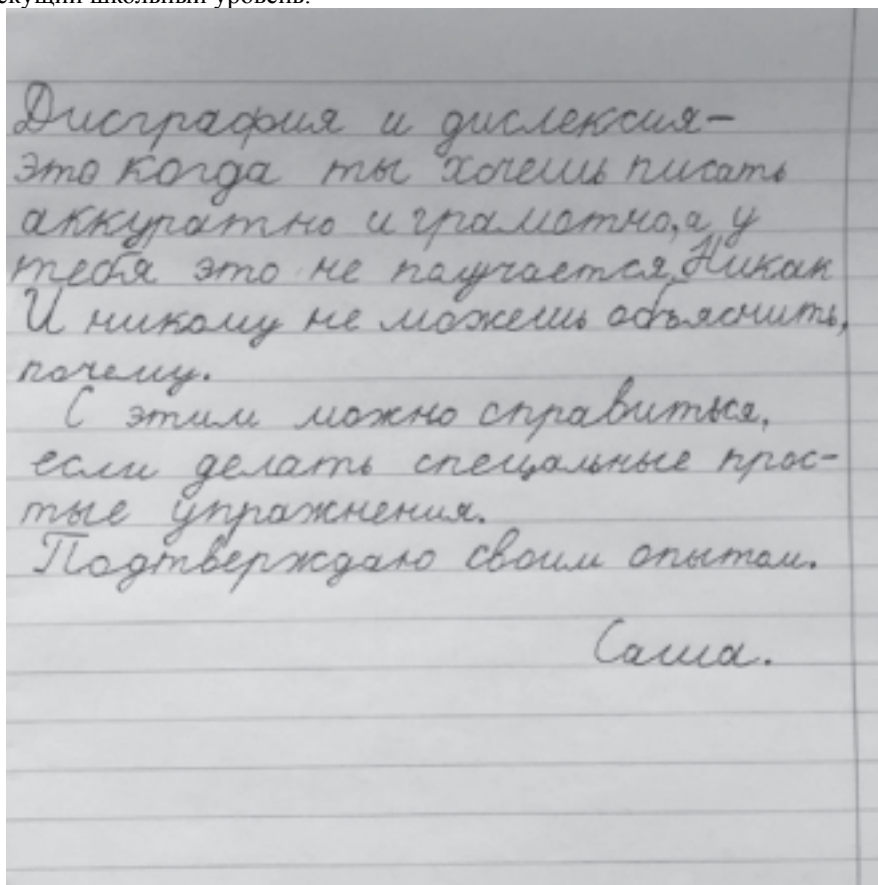 екущий школьный уровень.
Дисграфия и дислексия-
это когда ты хочешь писать
аккуратно и грамотно, а у
тебя это не получается, Никак
И никому не можешь объяснить,
почему.
С этим можно справиться,
если делать специальные прос-
тые упражнения.
Подтверждаю своим опытом.
Саша.